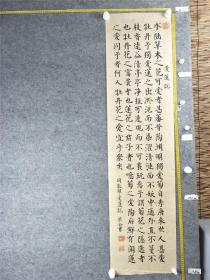 愛蓮說
水陸草木之花可愛者甚蕃晉陶淵明獨愛菊自李唐來世人甚愛
牡丹予獨愛蓮之出淤泥而不染濯清漣而不妖中通外直不蔓不
枝香遠益清亭亭淨植可遠觀而不可褻玩焉予謂菊花之隱逸者也
牡丹花之富貴者也蓮花之君子者也噫菊之愛陶後鮮有聞蓮
之愛同予者何人牡丹之愛宜乎眾矣
周敦頤愛蓮說